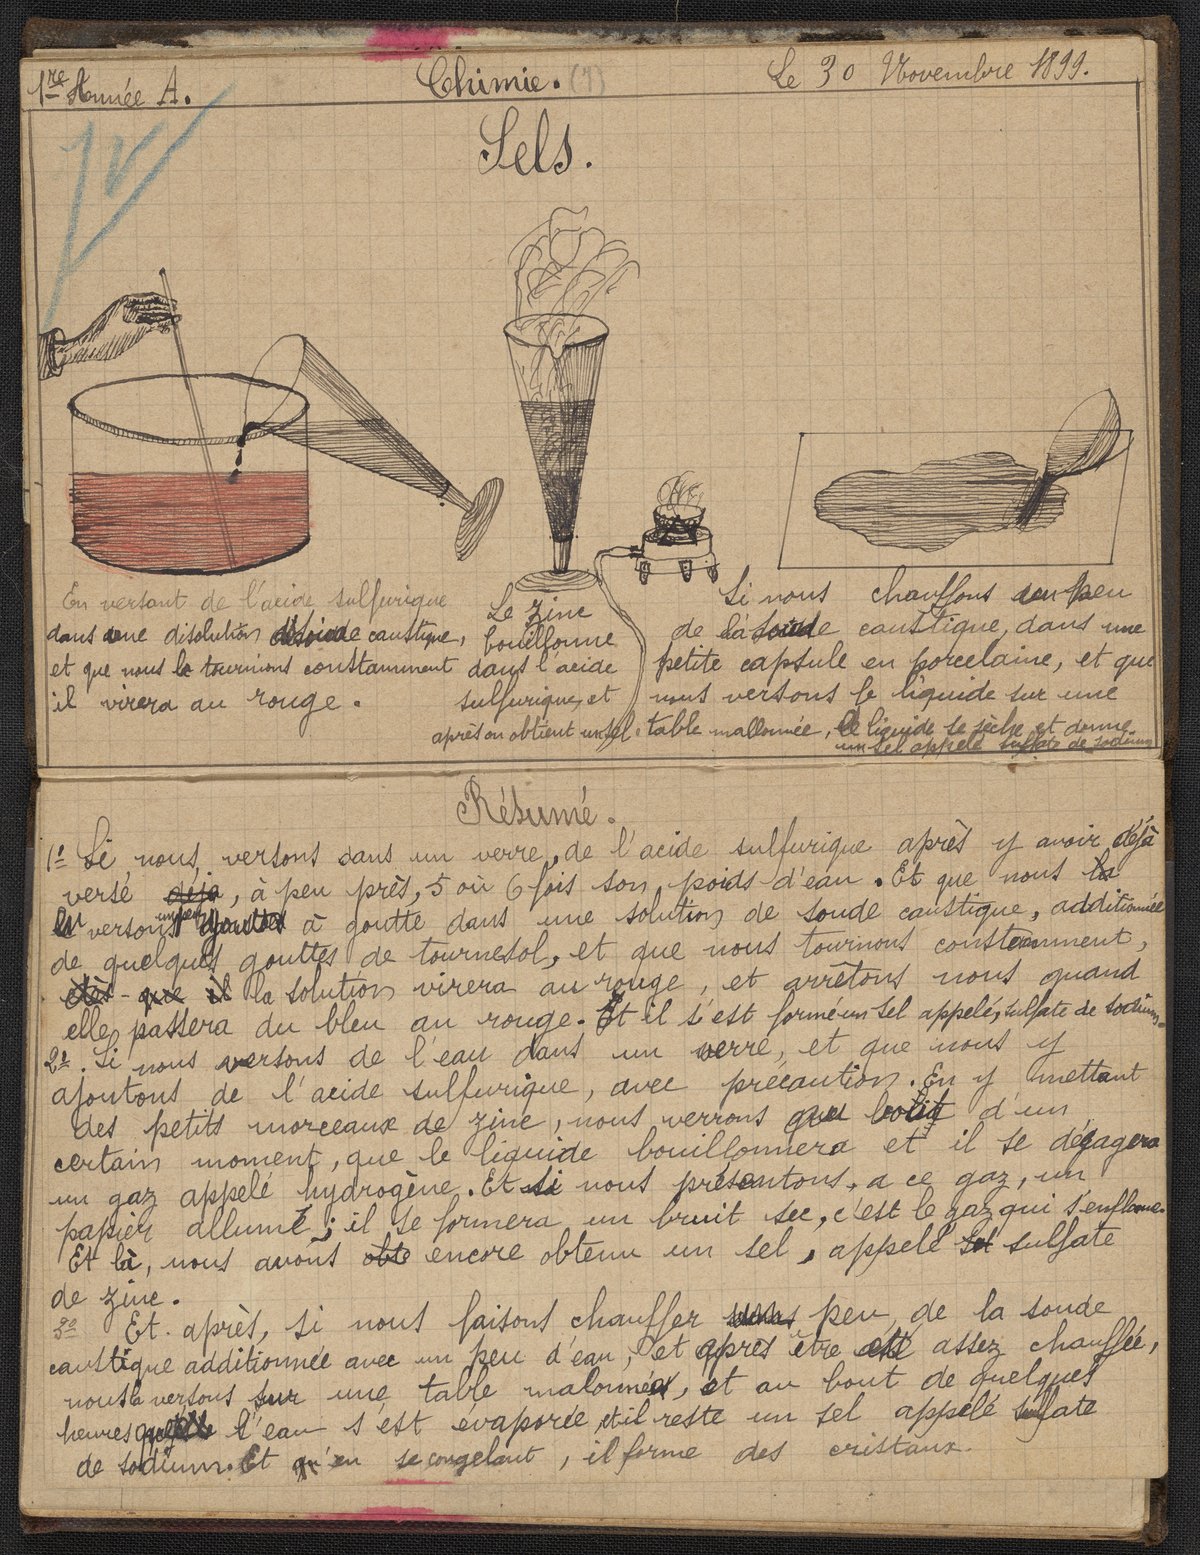 1re Année A.
Chimie. (7)
Le 30 Novembre 1899.
Sels.
En versant de l'acide sulfurique
dans une disolution de soude caustique,
et que nous le tournions constamment
il virera au rouge.
Le zinc
bouillonne
dans l'acide
sulfurique, et
après on obtient un sel.
Si nous chauffons un peu
de la soude caustique, dans une
petite capsule en porcelaine, et que
nous versons le liquide sur une
table mallonnée, le liquide se sèche et donne
un sel appelé sulfate de sodium
Résumé.
1º Si, nous, versons dans un verre, de l'acide sulfurique après y avoir déjà
versé déja, à peu près, 5 où 6 fois son poids d'eau. Et que nous la
versons un peu goutte à goutte dans une solution de soude caustique, additionnée
de quelques gouttes de tournesol, et que nous tournons constamment,
que il la solution virera au rouge, et arrêtons nous quand
elle passera du bleu au rouge. Et il s'est formé un sel appelé, sulfate de sodium.
2º. Si nous versons de l'eau dans un verre, et que nous y
ajoutons de l'acide sulfurique, avec précaution. En y mettant
des petits morceaux de zinc, nous verrons d'un
certain moment, que le liquide bouillonnera et il se dégagera
un gaz appelé hydrogène. Et si nous présentons, a ce gaz, un
papier allumé; il se formera un bruit sec, c'est le gaz qui s'enflamme.
Et là, nous avons obte encore obtenu un sel, appelé sel sulfate
de zinc.
3º Et après, si nous faisons chauffer peu, de la soude
caustique additionnée avec un peu d'eau, et après être assez chauffée,
nous la versons sur une table malonnée, et au bout de quelques
heures l'eau s'est évaporée, et il reste un sel appelé sulfate
de sodium. Et qu'en se congelant, il forme des cristaux.